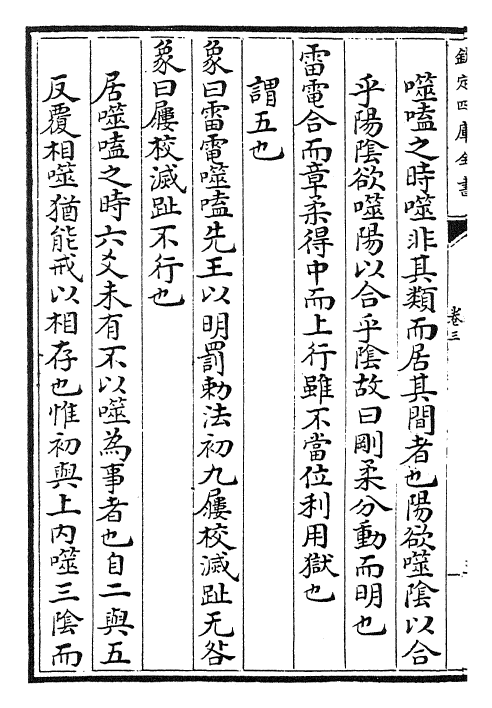 欽定四庫全書
卷三
噬嗑之時噬非其類而居其間者也陽欲噬陰以合
乎陽陰欲噬陽以合乎陰故曰剛柔分動而明也
雷電合而章柔得中而上行雖不當位利用獄也
謂五也
象曰雷電噬嗑先王以明罰勅法初九屨校滅趾无咎
象曰屨校滅趾不行也
居噬嗑之時六爻未有不以噬為事者也自二與五
反覆相噬猶能戒以相存也惟初與上內噬三陰而